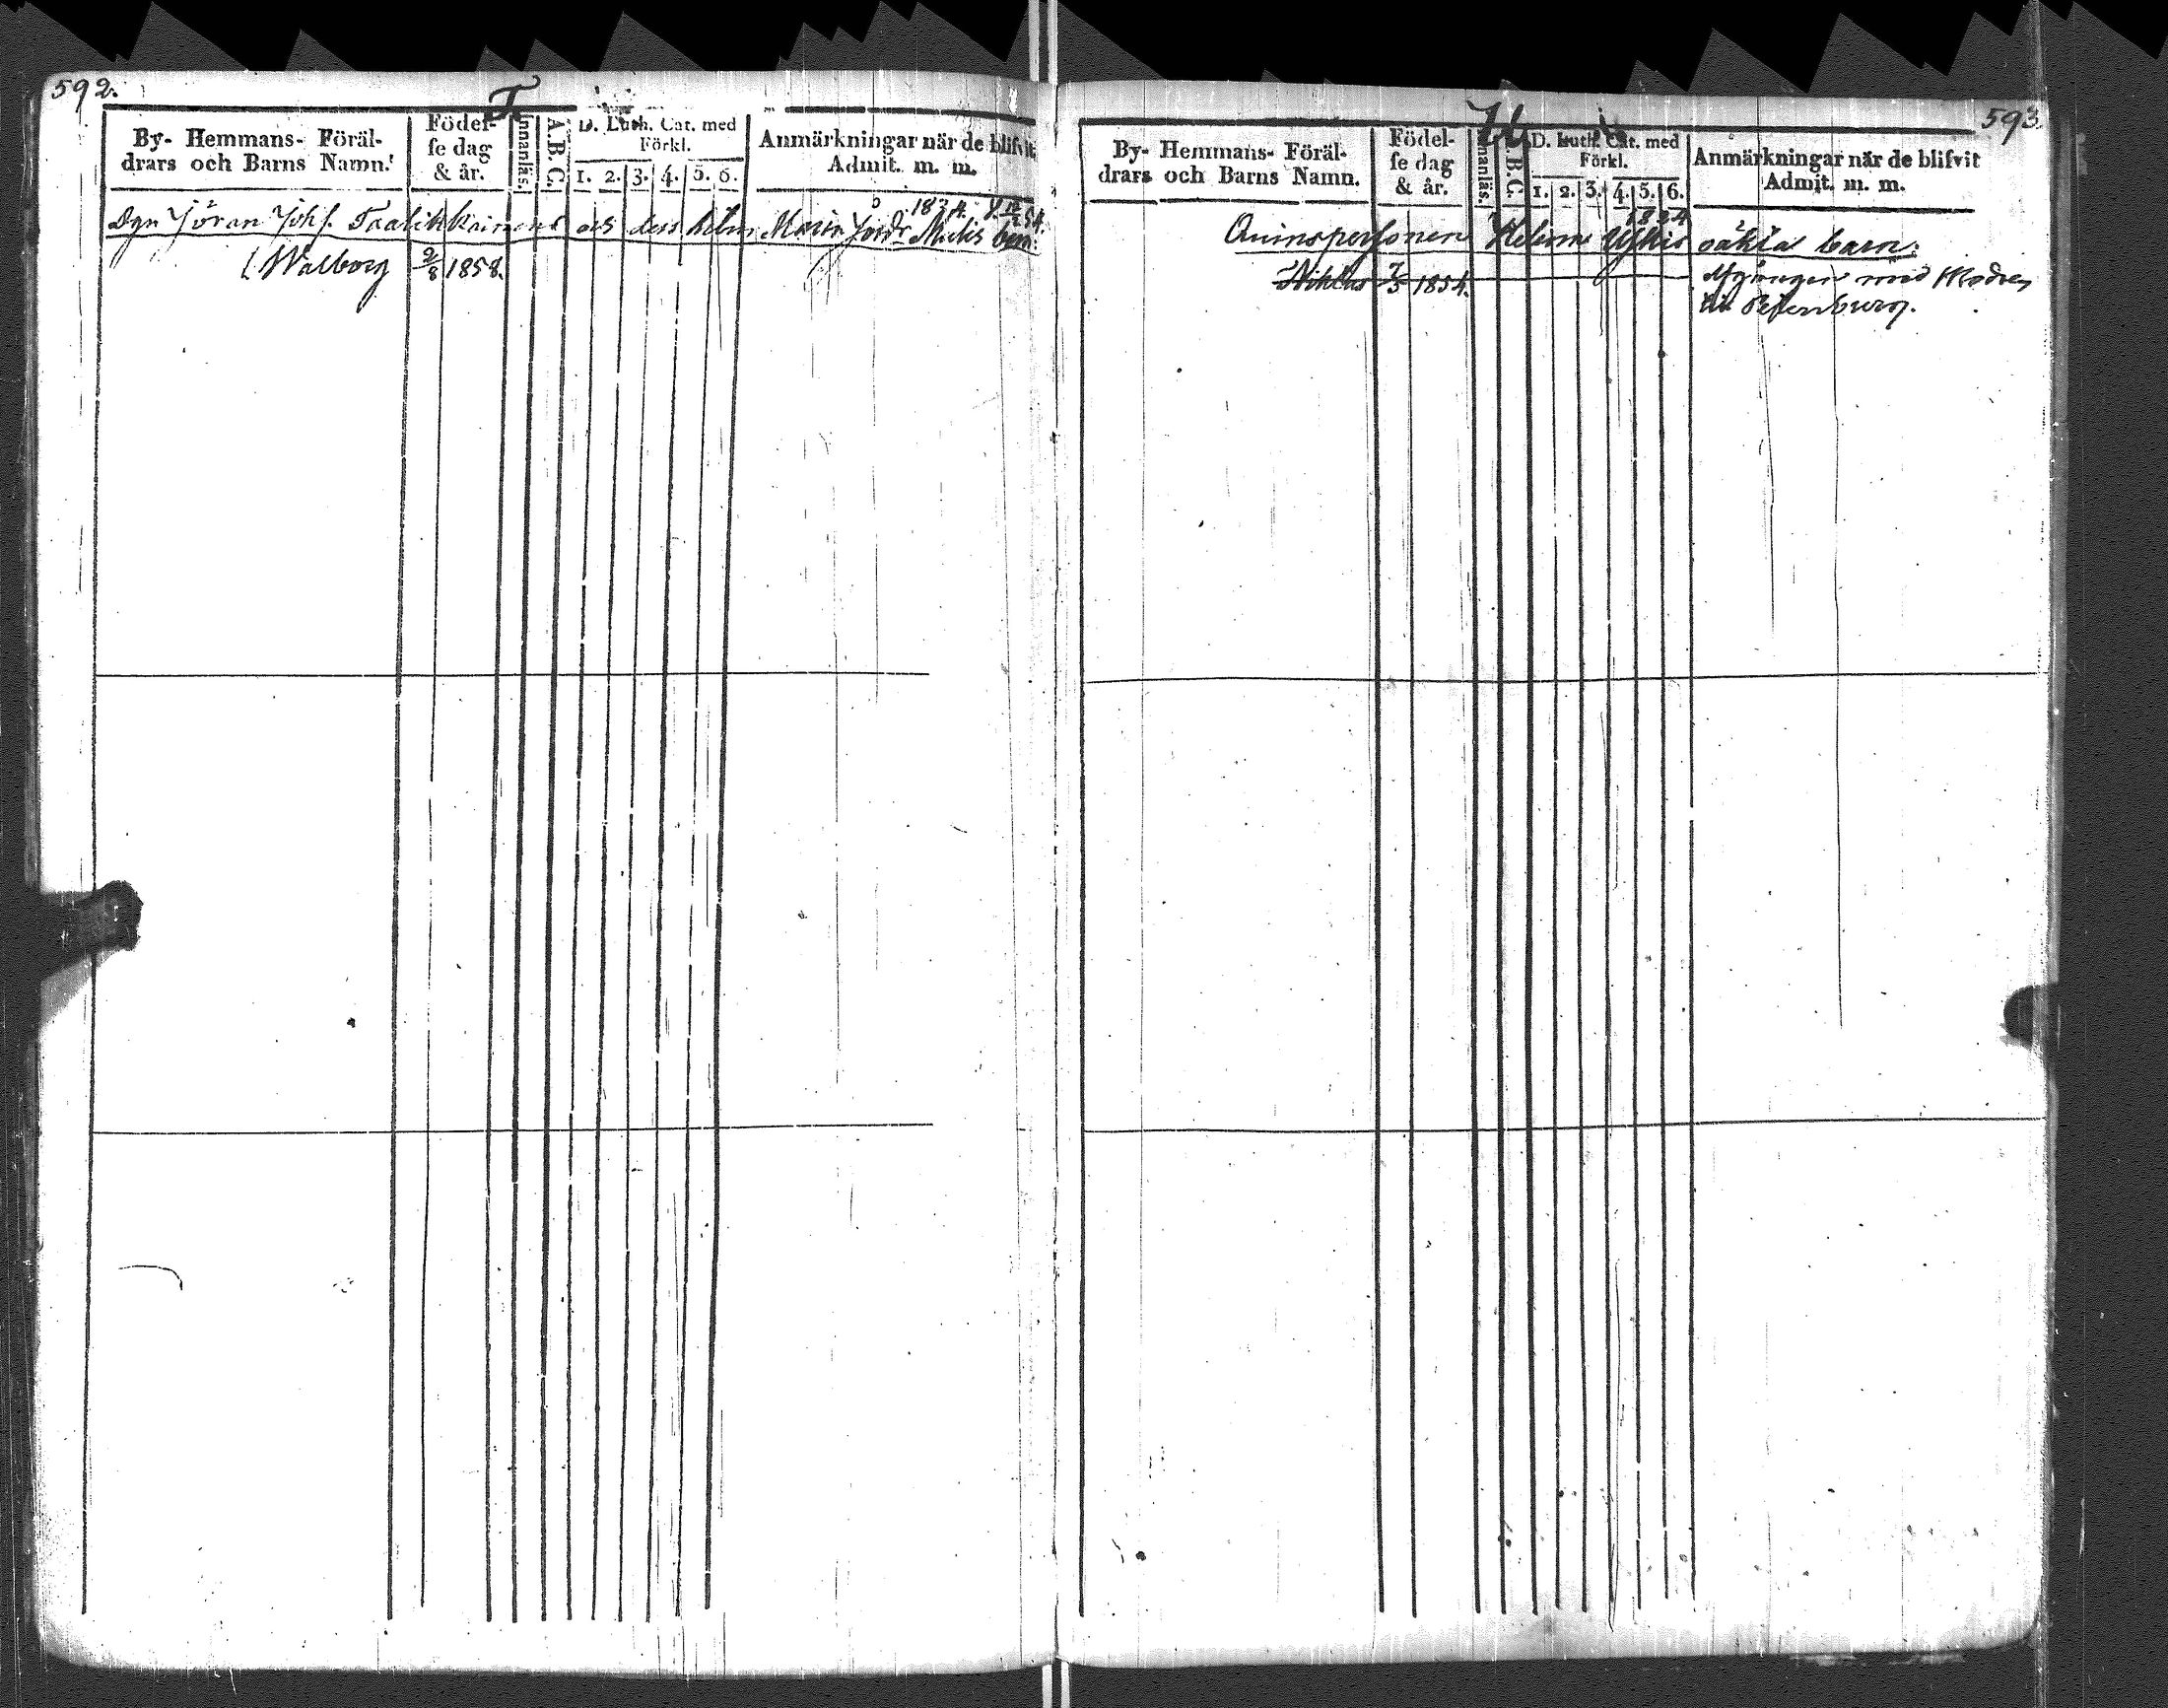 592.
T
By- Hemmans- Föräl-
drars och Barns Namn.
Födel-
se dag
& år.
Innanläs.
A.B.C.
D. Luth. Cat. med
Förkl.
1. 2. 3. 4. 5. 6.
Anmärkningar när de blifvit
Admit. m. m.
Dgn Jöran Johs. Taalikkainens och dess
Maria
barn:
Walborg 2/8 1858.
593.
By- Hemmans- Föräl-
drars och Barns Namn.
Födel-
se dag
& år.
Innanläs.
A.B.C.
D. Luth. Cat. med
Förkl.
1. 2. 3. 4. 5. 6.
Anmärkningar när de blifvit
Admit. m. m.
Qvinspersonen Helena oäkta barn:
Niklas 1854. Afgången med Modren
till Petersburg.